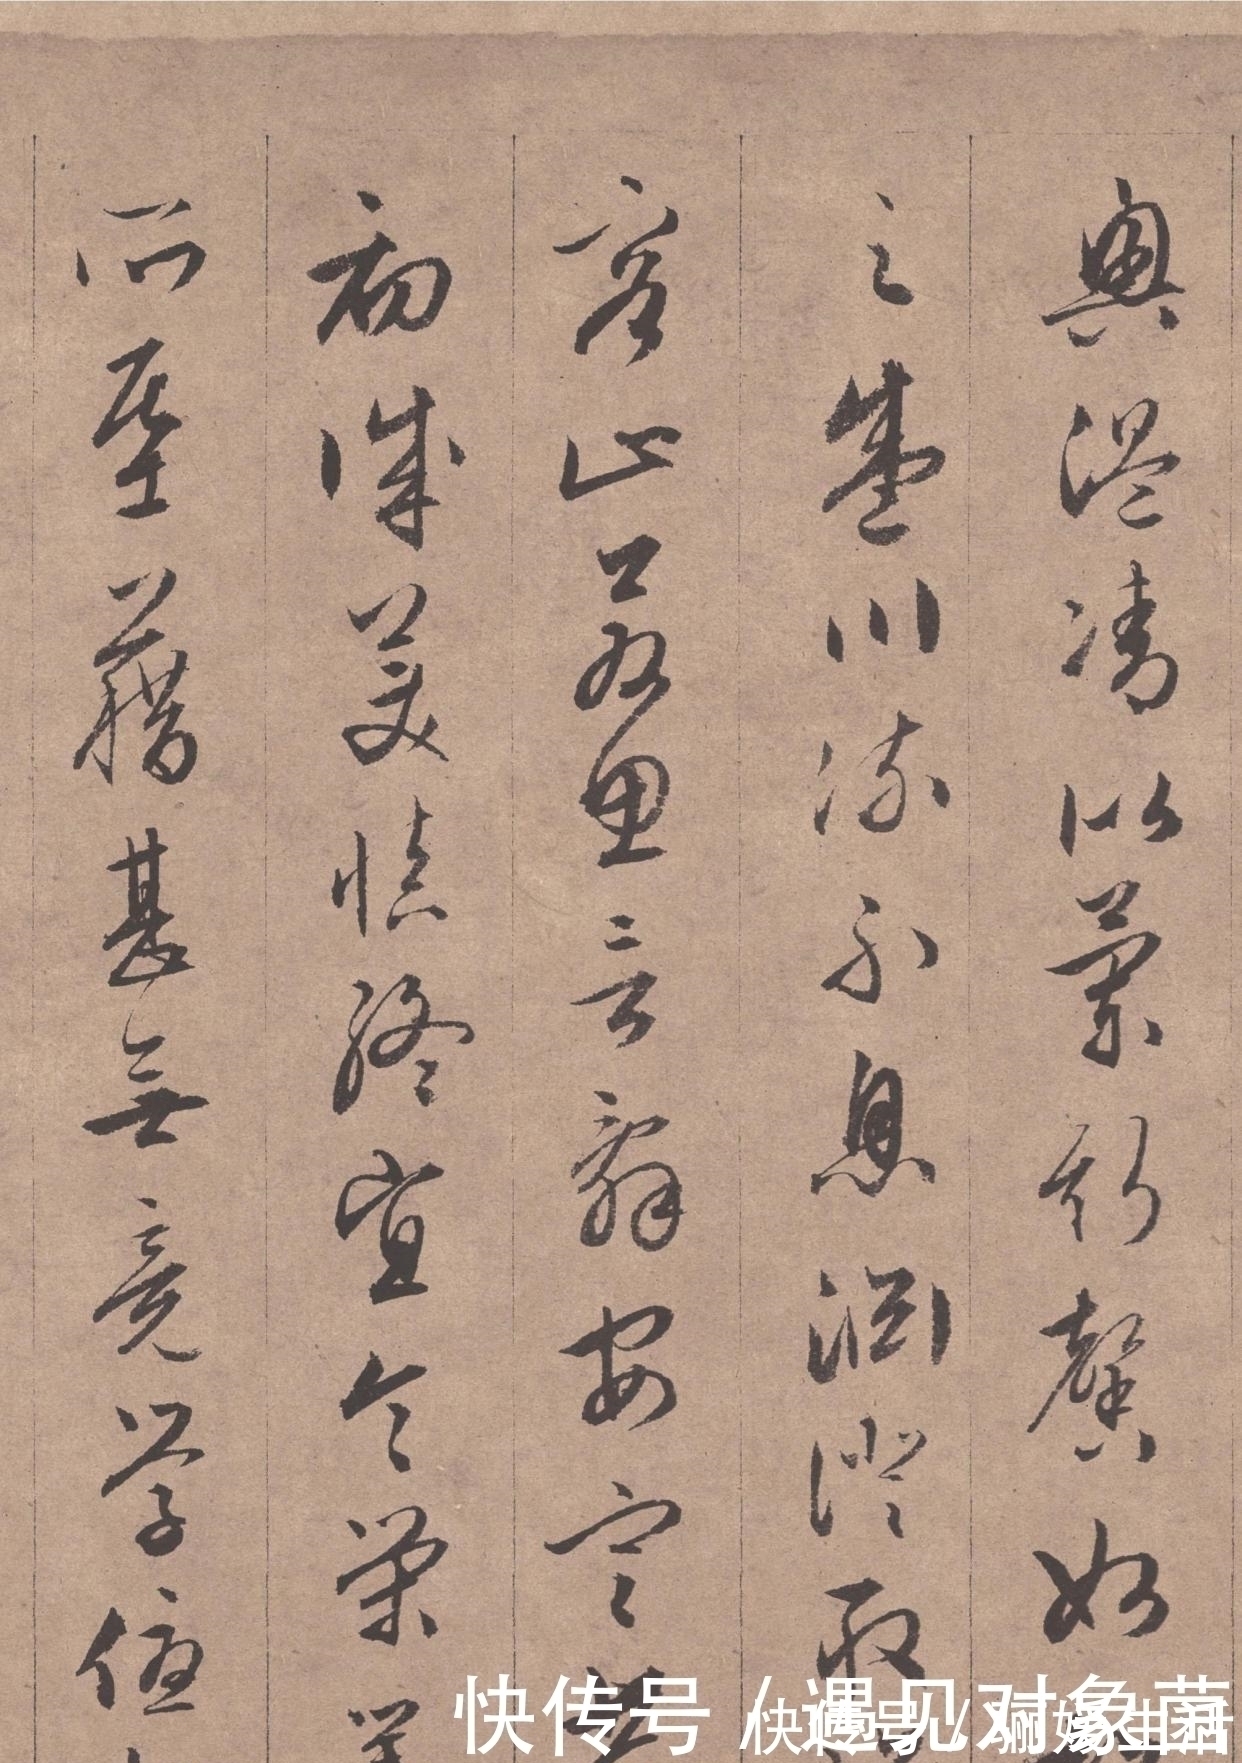 興溫清似蘭斯馨如
之盛川流不息淵澄取
容止若思言辭安定
初誠美慎終宜令榮業
所基藉甚無竟學優
快传号 / 遇见对象菌
快传号 /